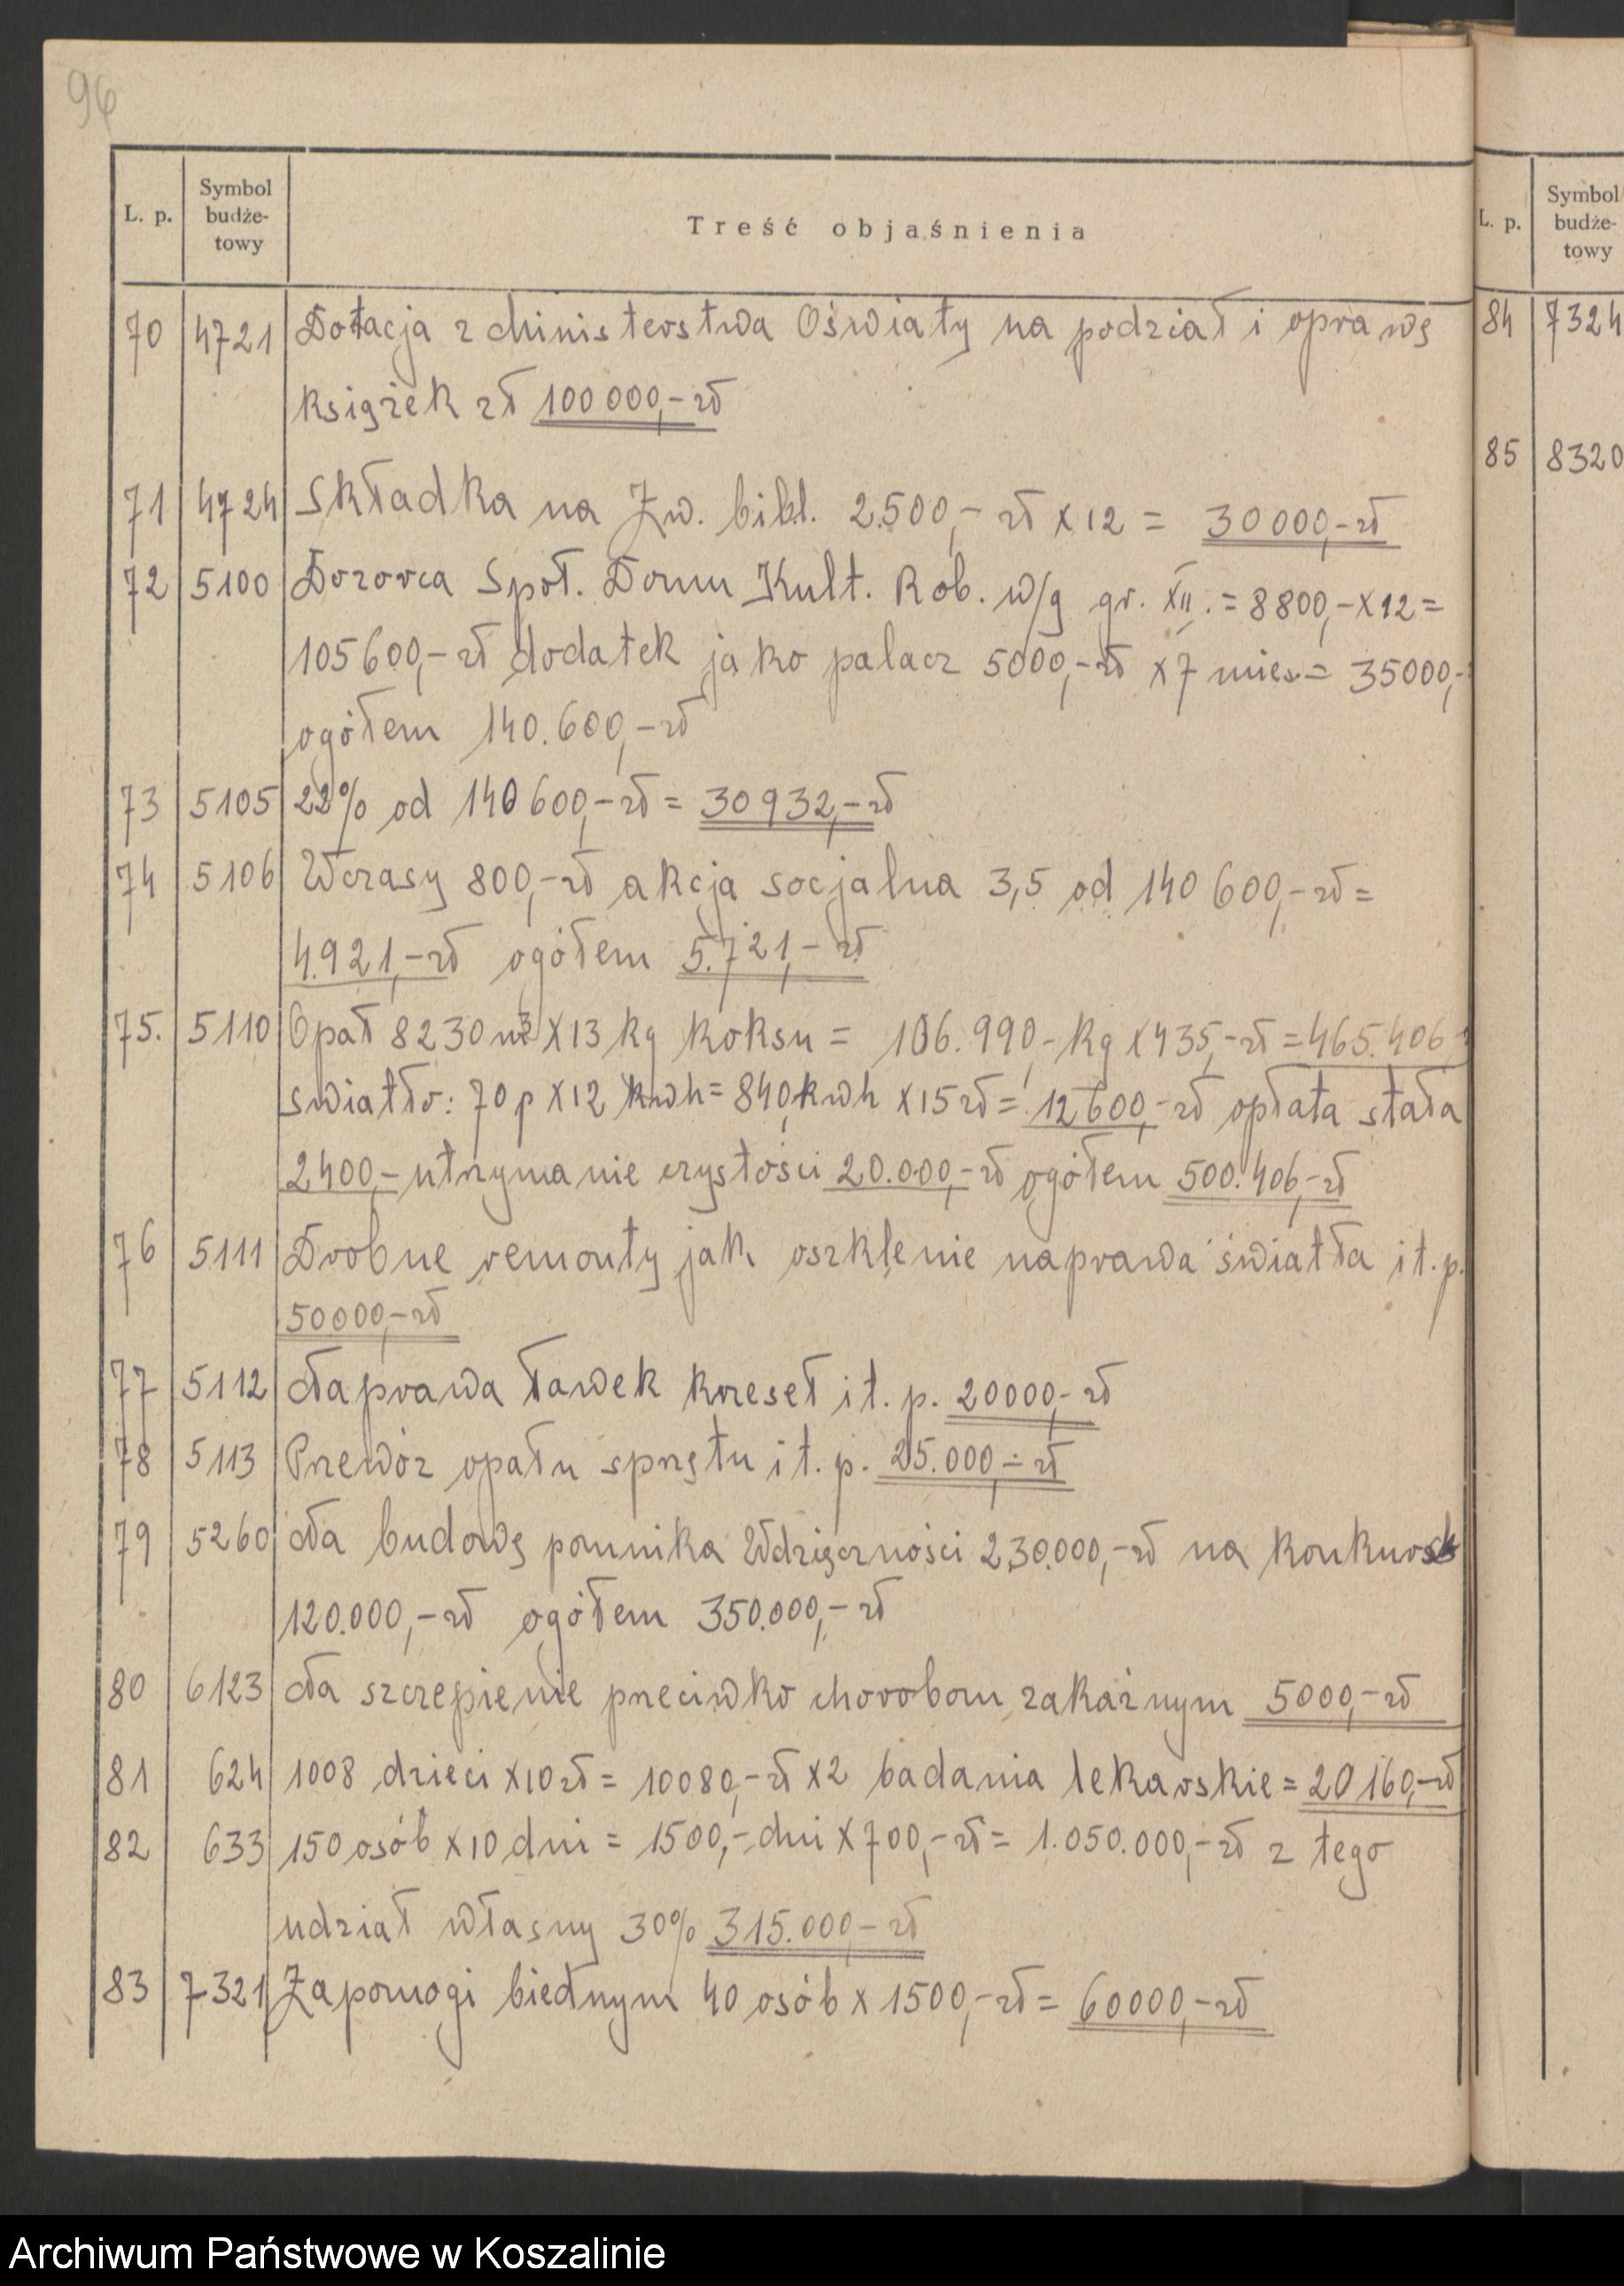 96
L. p. Symbol budże- towy Treść objaśnienia
70 4721 Dotacja z Ministerstwa Oświaty na podział i oprawę
książek zł 100000,- zł
71 4724 Składka na Zw. bibl. 2.500,- zł x 12 = 30000,- zł
72 5100 Dozorca Społ. Domu Kult. Rob. w/g gr. XII. = 8800,- x 12 =
105600,- zł dodatek jako palacz 5000,- zł x 7 mies = 35000,-
ogółem 140.600,- zł
73 5105 22% od 140600,- zł = 30932,- zł
74 5106 Wczasy 800,- zł akcja socjalna 3,5 od 140600,- zł =
4.921,- zł ogółem 5.721,- zł
75. 5110 Opał 8230 m3 x 13 kg koksu = 106.990,- kg x 435,- zł = 465.406,-
swiatło: 70 p x 12 kwh = 840 kwh x 15 zł = 12600,- zł opłata stała
2400,- utrzymanie czystości 20.000,- zł ogółem 500.406,- zł
76 5111 Drobne remonty jak oszklenie naprawa światła i t. p.
50000,- zł
77 5112 Naprawa ławek krzeseł i t. p. 20000,- zł
78 5113 Przewóz opału sprzętu i t. p. 25.000,- zł
79 5260 Na budowę pomnika Wdzięczności 230.000,- zł na konkurs
120.000,- zł ogółem 350.000,- zł
80 6123 Na szczepienie przeciwko chorobom zakaźnym 5000,- zł
81 624 1008 dzieci x 10 zł = 10080,- zł x 2 badania lekarskie = 20160,- zł
82 633 150 osób x 10 dni = 1500,- dni x 700,- zł = 1.050.000,- zł z tego
udział własny 30% 315.000,- zł
83 7321 Zapomogi biednym 40 osób x 1500,- zł = 60000,- zł
L. p. Symbol budże- towy
84 7324
85 8320
Archiwum Państwowe w Koszalinie